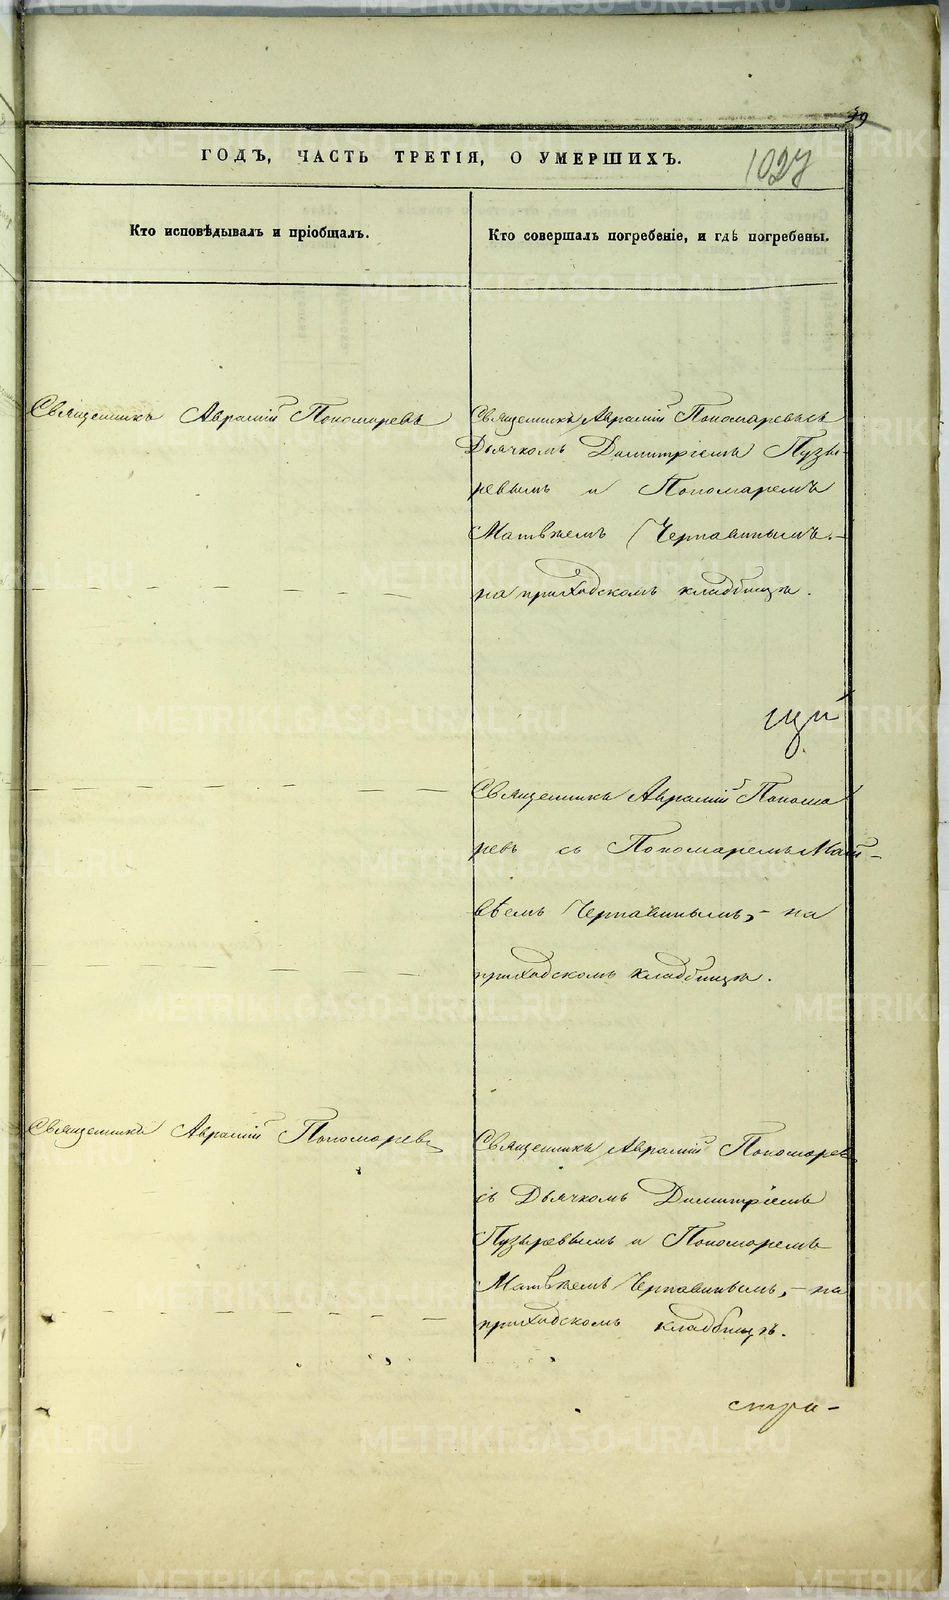 39
ГОДЪ, ЧАСТЬ ТРЕТІЯ, О УМЕРШИХЪ.
1027
Кто исповѣдывалъ и пріобщалъ.
Кто совершалъ погребеніе, и гдѣ погребены.
Священникъ Аврамій Пономаревъ
Священникъ Аврамій Пономаревъ съ
Дьячкомъ Димитріемъ Пузы-
ревымъ и Пономаремъ
Матвѣемъ Чернавинымъ. –
на приходскомъ кладбищѣ.
Священникъ Аврамій Понома
ревъ съ Пономаремъ Мат-
вѣемъ Чернавинымъ, – на
приходскомъ кладбищѣ.
Священникъ Аврамій Пономаревъ
Священникъ Аврамій Пономаревъ
съ Дьячкомъ Димитріемъ
Пузыревымъ и Пономаремъ
Матвѣемъ Чернавинымъ, – на
приходскомъ кладбищѣ.
METRIKI.GASO-URAL.RU